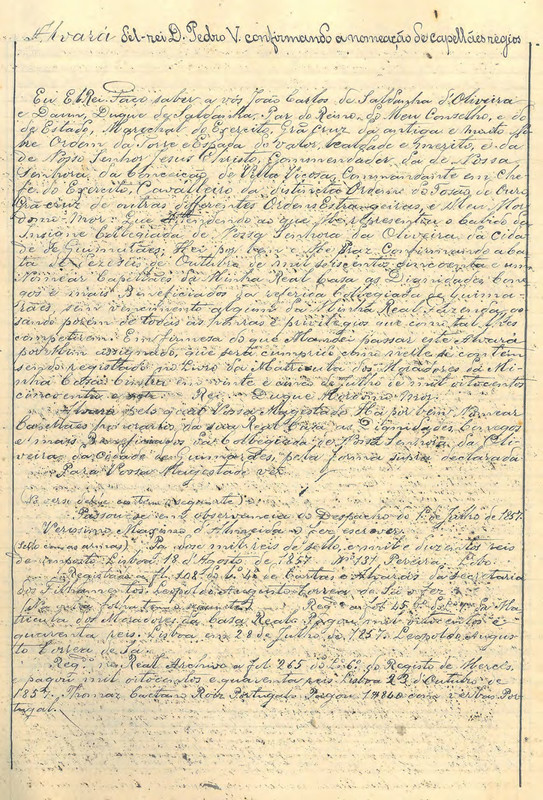 Alvará del-rei D. Pedro V. confirmando a nomeação de capellães regios
Eu El-Rei Faço saber a vós João Carlos de Saldanha d'Oliveira
e Daun, Duque de Saldanha, Par do Reino, do Meu Conselho, e do
de Estado, Marechal do Exercito, Grã Cruz da antiga e muito No-
bre Ordem da Torre e Espada do valor, lealdade e merito, e da
de Nosso Senhor Jesus Christo, Commendador da de Nossa
Senhora da Conceição de Villa Viçosa, Commandante em Che-
fe do Exercito, Cavalleiro da distincta Ordem do Tosão de Ouro
Grã cruz de outras differentes Ordens Estrangeiras, e Meu Mor-
domo-Mór: Que ao que Me representou o Cabido da
Insigne Collegiada de Nossa Senhora da Oliveira da Cida-
de de Guimarães: Hei por bem e Me Praz Confirmando a
de de Outubro de mil cincoenta e um
Nomear Capellães da Minha Real Casa as Dignidades Cone-
gos e mais Beneficiados da referida Collegiada de Guima-
rães, sem vencimento algum da Minha Real Fazenda, go-
sando porem de todas as honras e privilegios que como taes lhes
competirem. Em firmesa do que Mandei passar este Alvará
por Mim assignado, que será cumprido como nelle se contém
sendo registado no Livro da Matricula dos Moradores da Mi-
nha Casa. Cintra em vinte e cinco de Julho de mil oitocentos
cincoenta e sete. Rei. Duque Mordomo Mór.
Alvará pelo qual Vossa Magestade Ha por bem Nomear
Capellães da Sua Real Casa as Dignidades, Conegos
e mais Beneficiados da Collegiada de Nossa Senhora da Oli-
veira da Cidade de Guimarães, pela forma supra declarada
Para Vossa Magestade vêr
(No verso seguinte):
Passou-se em observancia do Despacho do 1º de Julho de 1857.
Verissimo Maximo d'Almeida o fez escrever
(Sello com as armas) mil reis de sello, e mil e duzentos reis
de imposto Lisboa 18 d'Agosto de 1857. Nº 137 Pereira.
Registado a fl. 108 do L. de Cartas e Alvarás da Secretaria
dos Filhamentos. Leopoldo Augusto Correa de Sá o fez
Reg. a fol. 15 da Ma-
tricula dos Moradores da Casa Real. Pagou mil e
quarenta reis. Lisboa em 28 de Julho de 1857. Leopoldo Augus-
to Correa de Sá.
Reg. no Real Archivo a fol 265 do do Registo de Mercês,
pagou mil oitocentos e quarenta reis Lisboa d'Outubro de
1857. Thomaz Caetano Roiz Portugal. Pagou 1$840 Por-
tugal.